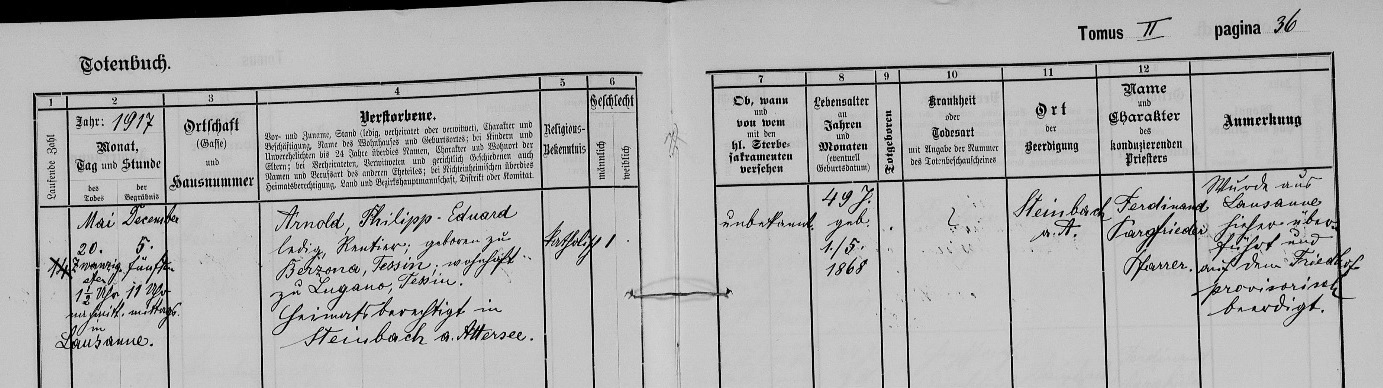 Tomus II pagina 36
Totenbuch.
1
2
3
4
5
6
7
8
9
10
11
12
Laufende Zahl
Jahr: 1917
Monat,
Tag und Stunde
des Todes
der Begräbnis
Ortschaft
(Gasse)
und
Hausnummer
Verstorbene.
Vor- und Zuname, Stand (ledig, verheiratet oder verwitwet), Charakter und
Beschäftigung, Name des Wohnhauses und Geburtsortes; bei Kindern und
Unverehelichten bis 24 Jahre überdies Namen, Charakter und Wohnort der
Eltern; bei Verheirateten, Verwitweten und gerichtlich Geschiedenen auch
Namen und Berufsart des anderen Theiles; bei Nichteinheimischen überdies
Heimatsberechtigung, Land und Bezirkshauptmannschaft, Distrikt oder Komitat.
Religions-
Bekenntnis
Geschlecht
männlich
weiblich
Ob, wann
und
von wem
mit den
hl. Sterbe-
sakramenten
versehen
Lebensalter
an
Jahren
und
Monaten
(eventuell
Geburtsdatum)
Totgeboren
Krankheit
oder
Todesart
mit Angabe der Nummer
des Totenbeschauscheines
Ort
der
Beerdigung
Name
und
Charakter
des
konduzierenden
Priesters
Anmerkung
Mai December
20. 5.
Zwanzig- Fünf-
1½ Uhr 11 Uhr
nachmitt. mittags
in
Lausanne.
Arnold, Philipp-Eduard
ledig, Rentier; geboren zu
Berzona, Tessin; wohnhaft
zu Lugano, Tessin.
Heimatsberechtigt in
Steinbach a. Attersee.
katholisch
1
unbekannt.
49 J.
geb.
1/5.
1868
?
Steinbach
a. A.
Ferdinand
Pargfrieder
Pfarrer.
Wurde aus
Lausanne
hieher über-
führt und
auf dem Friedhof
provisorisch
beerdigt.